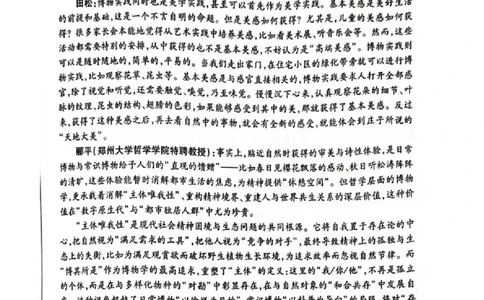 田松:博物实践同时也是美学实践,甚至可以首先作为美学实践。基本美感是美好生活
的前提和基础,这是一个不言自明的命题。但是美感如何获得?尤其是,儿童的美感如何获
得?很多家长会本能地觉得从艺术实践中培养美感,比如看美术展、听音乐会等。然而,这些
活动都需要特别的安排,从中获得的也不是基本美感,不妨认为是“高端美感”。博物实践则
可以是随时随地的,简单的,平易的。当我们走出家门,在住宅小区的绿化带旁就可以进行博
物实践,比如观察花草、昆虫等。基本美感是与感官直接相关的,博物实践要求人打开全部感
官,除了视觉和听觉,还需要触觉、嗅觉,乃至味觉。慢慢沉下心来,认真观察花朵的细节、叶
脉的纹理、昆虫的结构、翅膀的色彩,如果能够感受到其中的美,那就获得了基本美感。反过
来,获得了这种美感之后,再去看自然中的事物,就会有全新的感受,就能体会到庄子所说的
“天地大美”。
郦平(郑州大学哲学学院特聘教授):事实上,贴近自然时获得的审美与诗性体验,是日常
博物与常识博物给予人们的“直观的馈赠”——比如春日见樱花飘落的感动、秋日听松涛阵阵
的清旷,这些体验能暂时消解都市生活的焦虑,为精神提供“休憩空间”。但哲学层面的博物
学,更承载着消解“主体唯我性”、重构精神境界、重建人与世界共生关系的深层价值,这种价
值在“数字原生代”与“都市独居人群”中尤为珍贵。
“主体唯我性”是现代社会精神困境与生态问题的共同根源。它将自我置于存在论的中
心,把自然视为“满足需求的工具”,把他人视为“竞争的对手”,最终导致精神上的孤独与生
态上的失衡,比如为满足观赏欲而破坏野生植物生长环境,为追求效率而忽视自然节律。而
“博其所是”作为博物学的最高追求,重塑了“主体”的定义:这里的“我/你/他”,不再是孤立
的个体,而是在与多样化物种的“对勘”中彰显存在,在与自然对象的“和合共存”中发展自